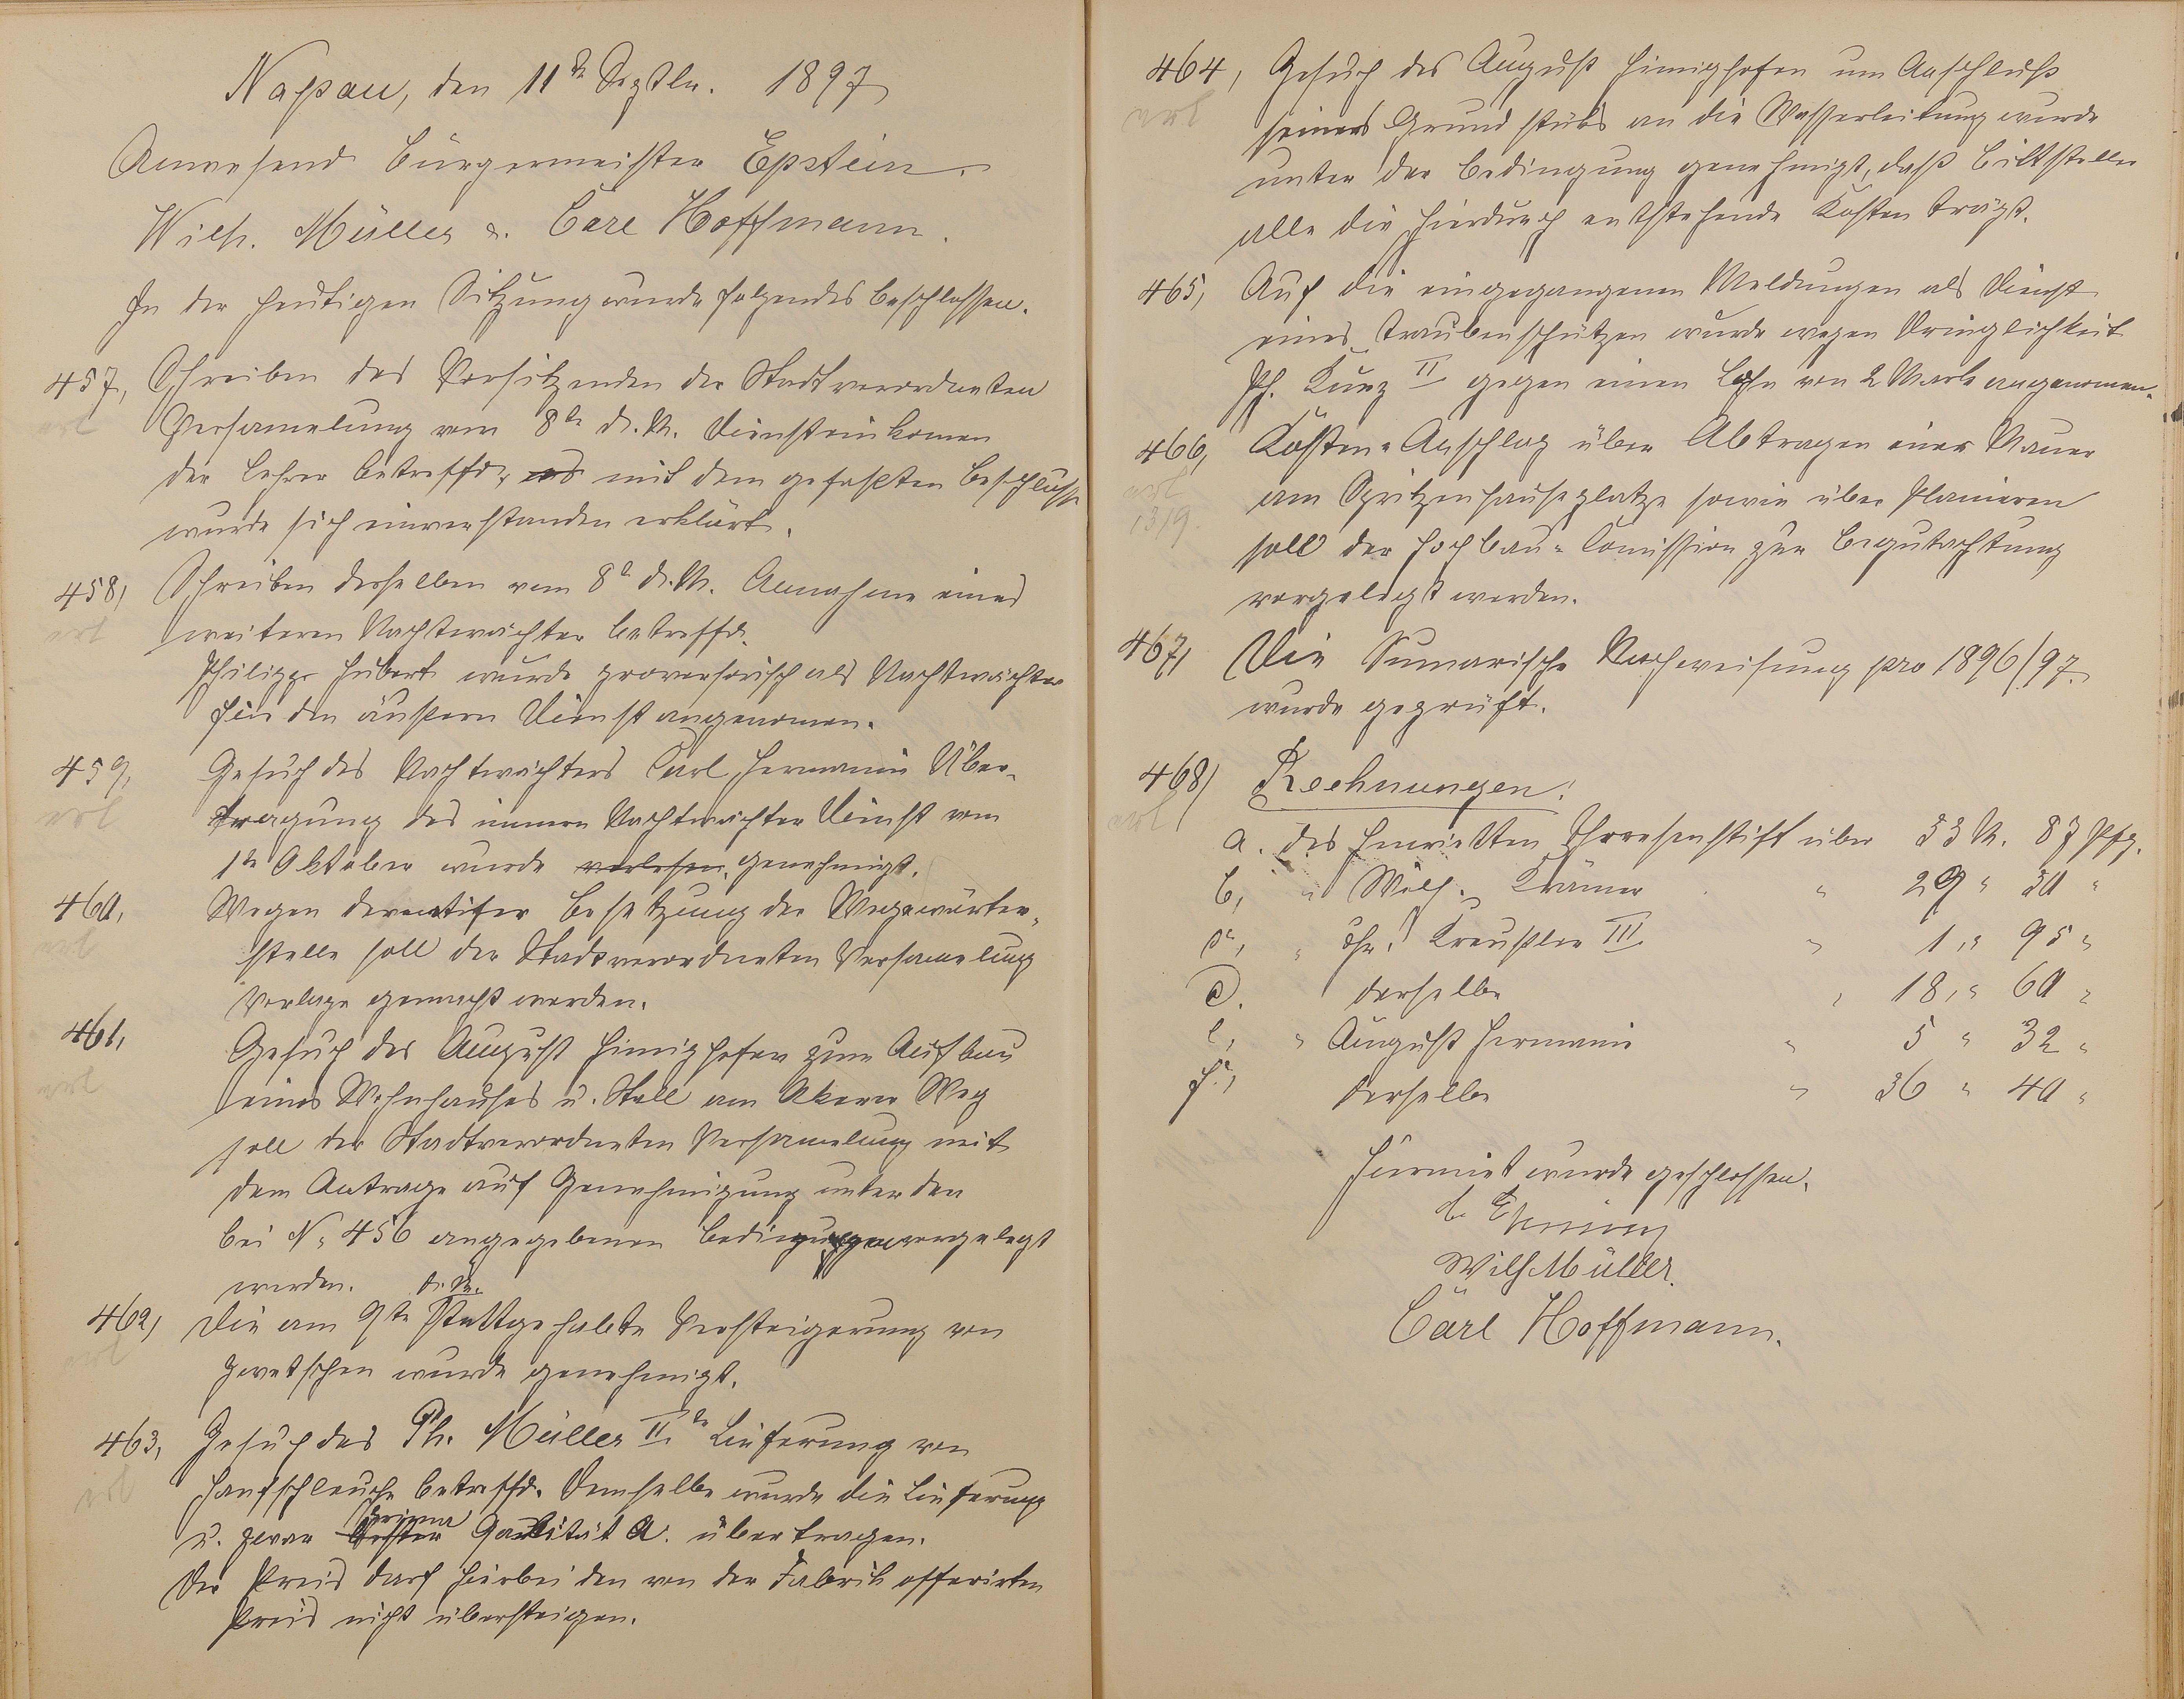 Naßau, den 11ten Septbr. 1897
Anwesend Bürgermeister Epstein.
Wilh. Müller u. Carl Hoffmann.
In der heutigen Sitzung wurde folgendes beschlossen.
457, Schreiben des Vorsitzenden der Stadtverordneten
Versamelung vom 8ten ds. Mts. Diensteinkomen
erl
der Lehrer betreffd, mit dem gefaßten Beschlusse
wurde sich einverstanden erklärt.
458, Schreiben desselben vom 8t ds. Mts. Annahme eines
erl weiteren Nachtwächter betreffd.
Philipp Hubert wurde provisorisch als Nachtwächter
für den äußern Dienst angenomen.
459, Gesuch des Nachtwächters Carl Hermann Über-
erl tragung des innern Nachtwächter Dienst vom
1ten Oktober wurde verlesen. genehmigt.
460, Wegen Besetzung der Wegewärter-
erl stelle soll der Stadtverordneten Versamelung
Vorlage gemacht werden.
461, Gesuch des August Himighofen zum Aufbau
erl eines Wohnhauses u. Stall am Weg
soll der Stadtverordneten Versamelung mit
dem Antrage auf Genehmigung unter den
bei No 456 angegebenen Bedingungen vorgelegt
werden. ds. Mts.
462, Die am 9ten stattgehabte Versteigerung von
erl Zwetschen wurde genehmigt.
463, Gesuch des Ph. Müller IIten Lieferung von
erl Hanfschleuche betreffd. Demselbe wurde die Lieferung
prima
u. zwar bester Qualität A. übertragen.
Der Preis darf hierbei den von der Fabrik offerirten
Preis nicht übersteigen.
464, Gesuch des August Himighofen um Anschluß
erl seines Grundstücks an die Wasserleitung wurde
unter der Bedingung genehmigt, daß Bittsteller
alle die hierdurch entstehende Kosten trägt.
465, Auf die eingegangenen Meldungen als Dienst
eines Traubenschützen wurde wegen Dringlichkeit
Ph. Kunz II gegen einen Lohn von 2 Mark angenomen.
466, Kosten-Anschlag über Abtragen einer Mauer
erl am Spritzenhausplatze sowie über Planieren
13/9.
soll der Hochbau-Comission zur Begutachtung
vorgelegt werden.
467, Die Sumarische Nachweisung pro 1896/97.
wurde geprüft.
468, Rechnungen:
erl
a. des Henrietten Theresenstift über 33 M. 87 Pfg.
b, " Wilh. Krämer " 29 " 30 "
c, " Chr. Kreußler III. " 1 " 95 "
d. derselbe " 18 " 60 "
e, " August Hermann " 5 " 32 "
f, derselbe " 36 " 40 "
Hiermit wurde geschlossen.
Wilh Müller.
Carl Hoffmann.